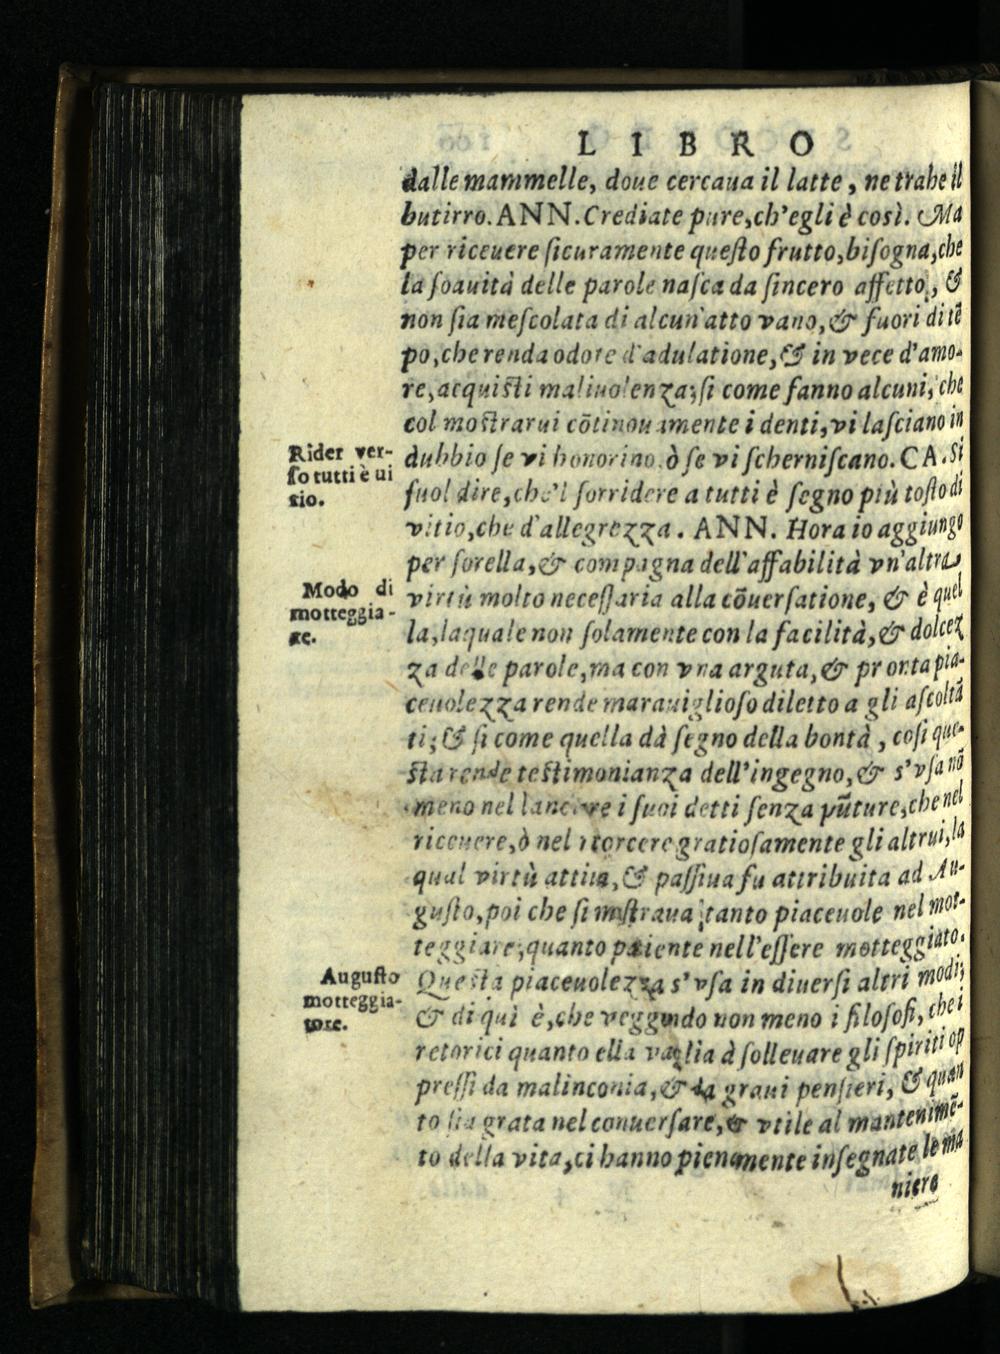 LIBRO
dalle mammelle, doue cercaua il latte, ne trahe il
butirro. ANN. Crediate pure, ch'egli è così. Ma
per riceuere sicuramente questo frutto, bisogna, che
la soauità delle parole nasca da sincero affetto, &
non sia mescolata di alcun'atto vano, & fuori di tẽ
po, che renda odore d'adulatione, & in vece d'amo-
re, acquisti maliuolenza; si come fanno alcuni, che
col mostrarui cõtinouamente i denti, vi lasciano in
Rider ver-
so tutti è ui
tio.
dubbio se vi honorino, ò se vi scherniscano. CA. Si
suol dire, che'l sorridere a tutti è segno più tosto di
vitio, che d'allegrezza. ANN. Hora io aggiungo
per sorella, & compagna dell'affabilità vn'altra
Modo di
motteggia-
re.
virtù molto necessaria alla cõuersatione, & è quel
la, laquale non solamente con la facilità, & dolcez
za delle parole, ma con vna arguta, & pronta pia-
ceuolezza rende marauiglioso diletto a gli ascoltã
ti; & si come quella dà segno della bontà, cosi que-
sta rende testimonianza dell'ingegno, & s'vsa nõ
meno nel lanciare i suoi detti senza pũture, che nel
riceuere, ò nel ritorcere gratiosamente gli altrui, la
qual virtù attiua, & passiua fu attribuita ad Au-
gusto, poi che si mostraua tanto piaceuole nel mot-
teggiare, quanto patiente nell'essere motteggiato.
Augusto
motteggia-
tore.
Questa piaceuolezza s'vsa in diuersi altri modi;
& di qui è, che veggendo non meno i filosofi, che i
retorici quanto ella vaglia à solleuare gli spiriti op
pressi da malinconia, & da graui pensieri, & quan
to sia grata nel conuersare, & vtile al mantenimẽ-
to della vita, ci hanno pienamente insegnate le ma
niere